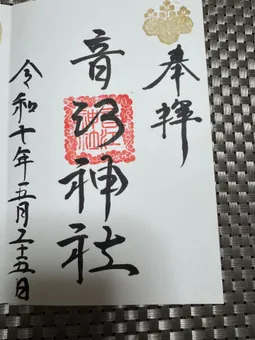 奉拝
音江神社
令和七年五月二十五日